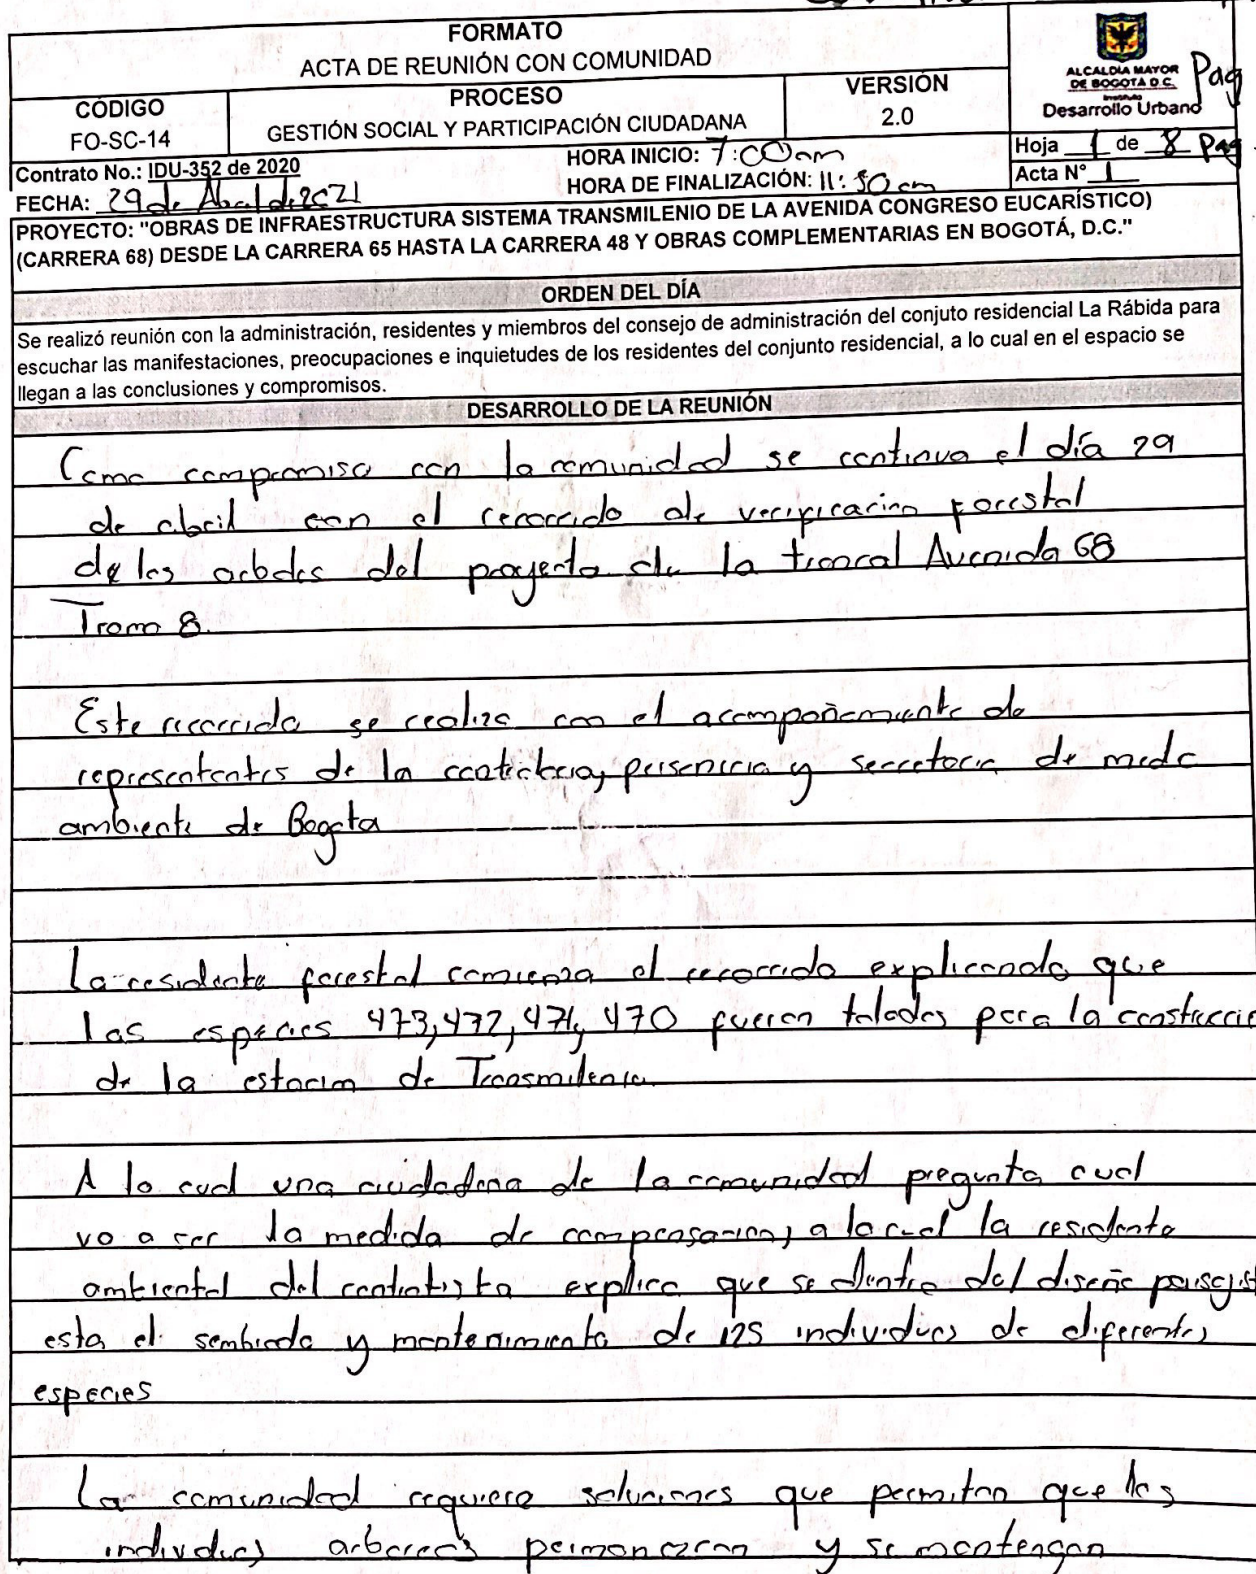 FORMATO
ACTA DE REUNIÓN CON COMUNIDAD
CÓDIGO
FO-SC-14
PROCESO
GESTIÓN SOCIAL Y PARTICIPACIÓN CIUDADANA
VERSIÓN
2.0
ALCALDÍA MAYOR
DE BOGOTÁ D.C.
Instituto
Desarrollo Urbano
Pag
Contrato No.: IDU-352 de 2020
HORA INICIO: 7:00am
Hoja 1 de 8 Pag
FECHA: 29 de Abril de 2021
HORA DE FINALIZACIÓN: 11:50 am
Acta N° 1
PROYECTO: "OBRAS DE INFRAESTRUCTURA SISTEMA TRANSMILENIO DE LA AVENIDA CONGRESO EUCARÍSTICO)
(CARRERA 68) DESDE LA CARRERA 65 HASTA LA CARRERA 48 Y OBRAS COMPLEMENTARIAS EN BOGOTÁ, D.C."
ORDEN DEL DÍA
Se realizó reunión con la administración, residentes y miembros del consejo de administración del conjuto residencial La Rábida para
escuchar las manifestaciones, preocupaciones e inquietudes de los residentes del conjunto residencial, a lo cual en el espacio se
llegan a las conclusiones y compromisos.
DESARROLLO DE LA REUNIÓN
Como compromiso con la comunidad se continua el día 29
de abril con el recorrido de verificacion forestal
de los arboles del proyecto de la troncal Avenida 68
Tramo 8.
Este recorrido se realiza con el acompañamiento de
representantes de la contraloria, personeria y secretaria de medio
ambiente de Bogota
La residente forestal comienza el recorrido explicando que
las especies 473, 472, 471, 470 fueron talados para la construccio
de la estacion de Transmilenio.
A lo cual una ciudadana de la comunidad pregunta cual
va a ser la medida de compensacion, a lo cual la residente
ambiental del contratista explica que se dentro del diseño paisagist
esta el sembrado y mantenimiento de 125 individuos de diferentes
especies
La comunidad requiere soluciones que permitan que los
individuos arboreos permanezcan y se mantengan